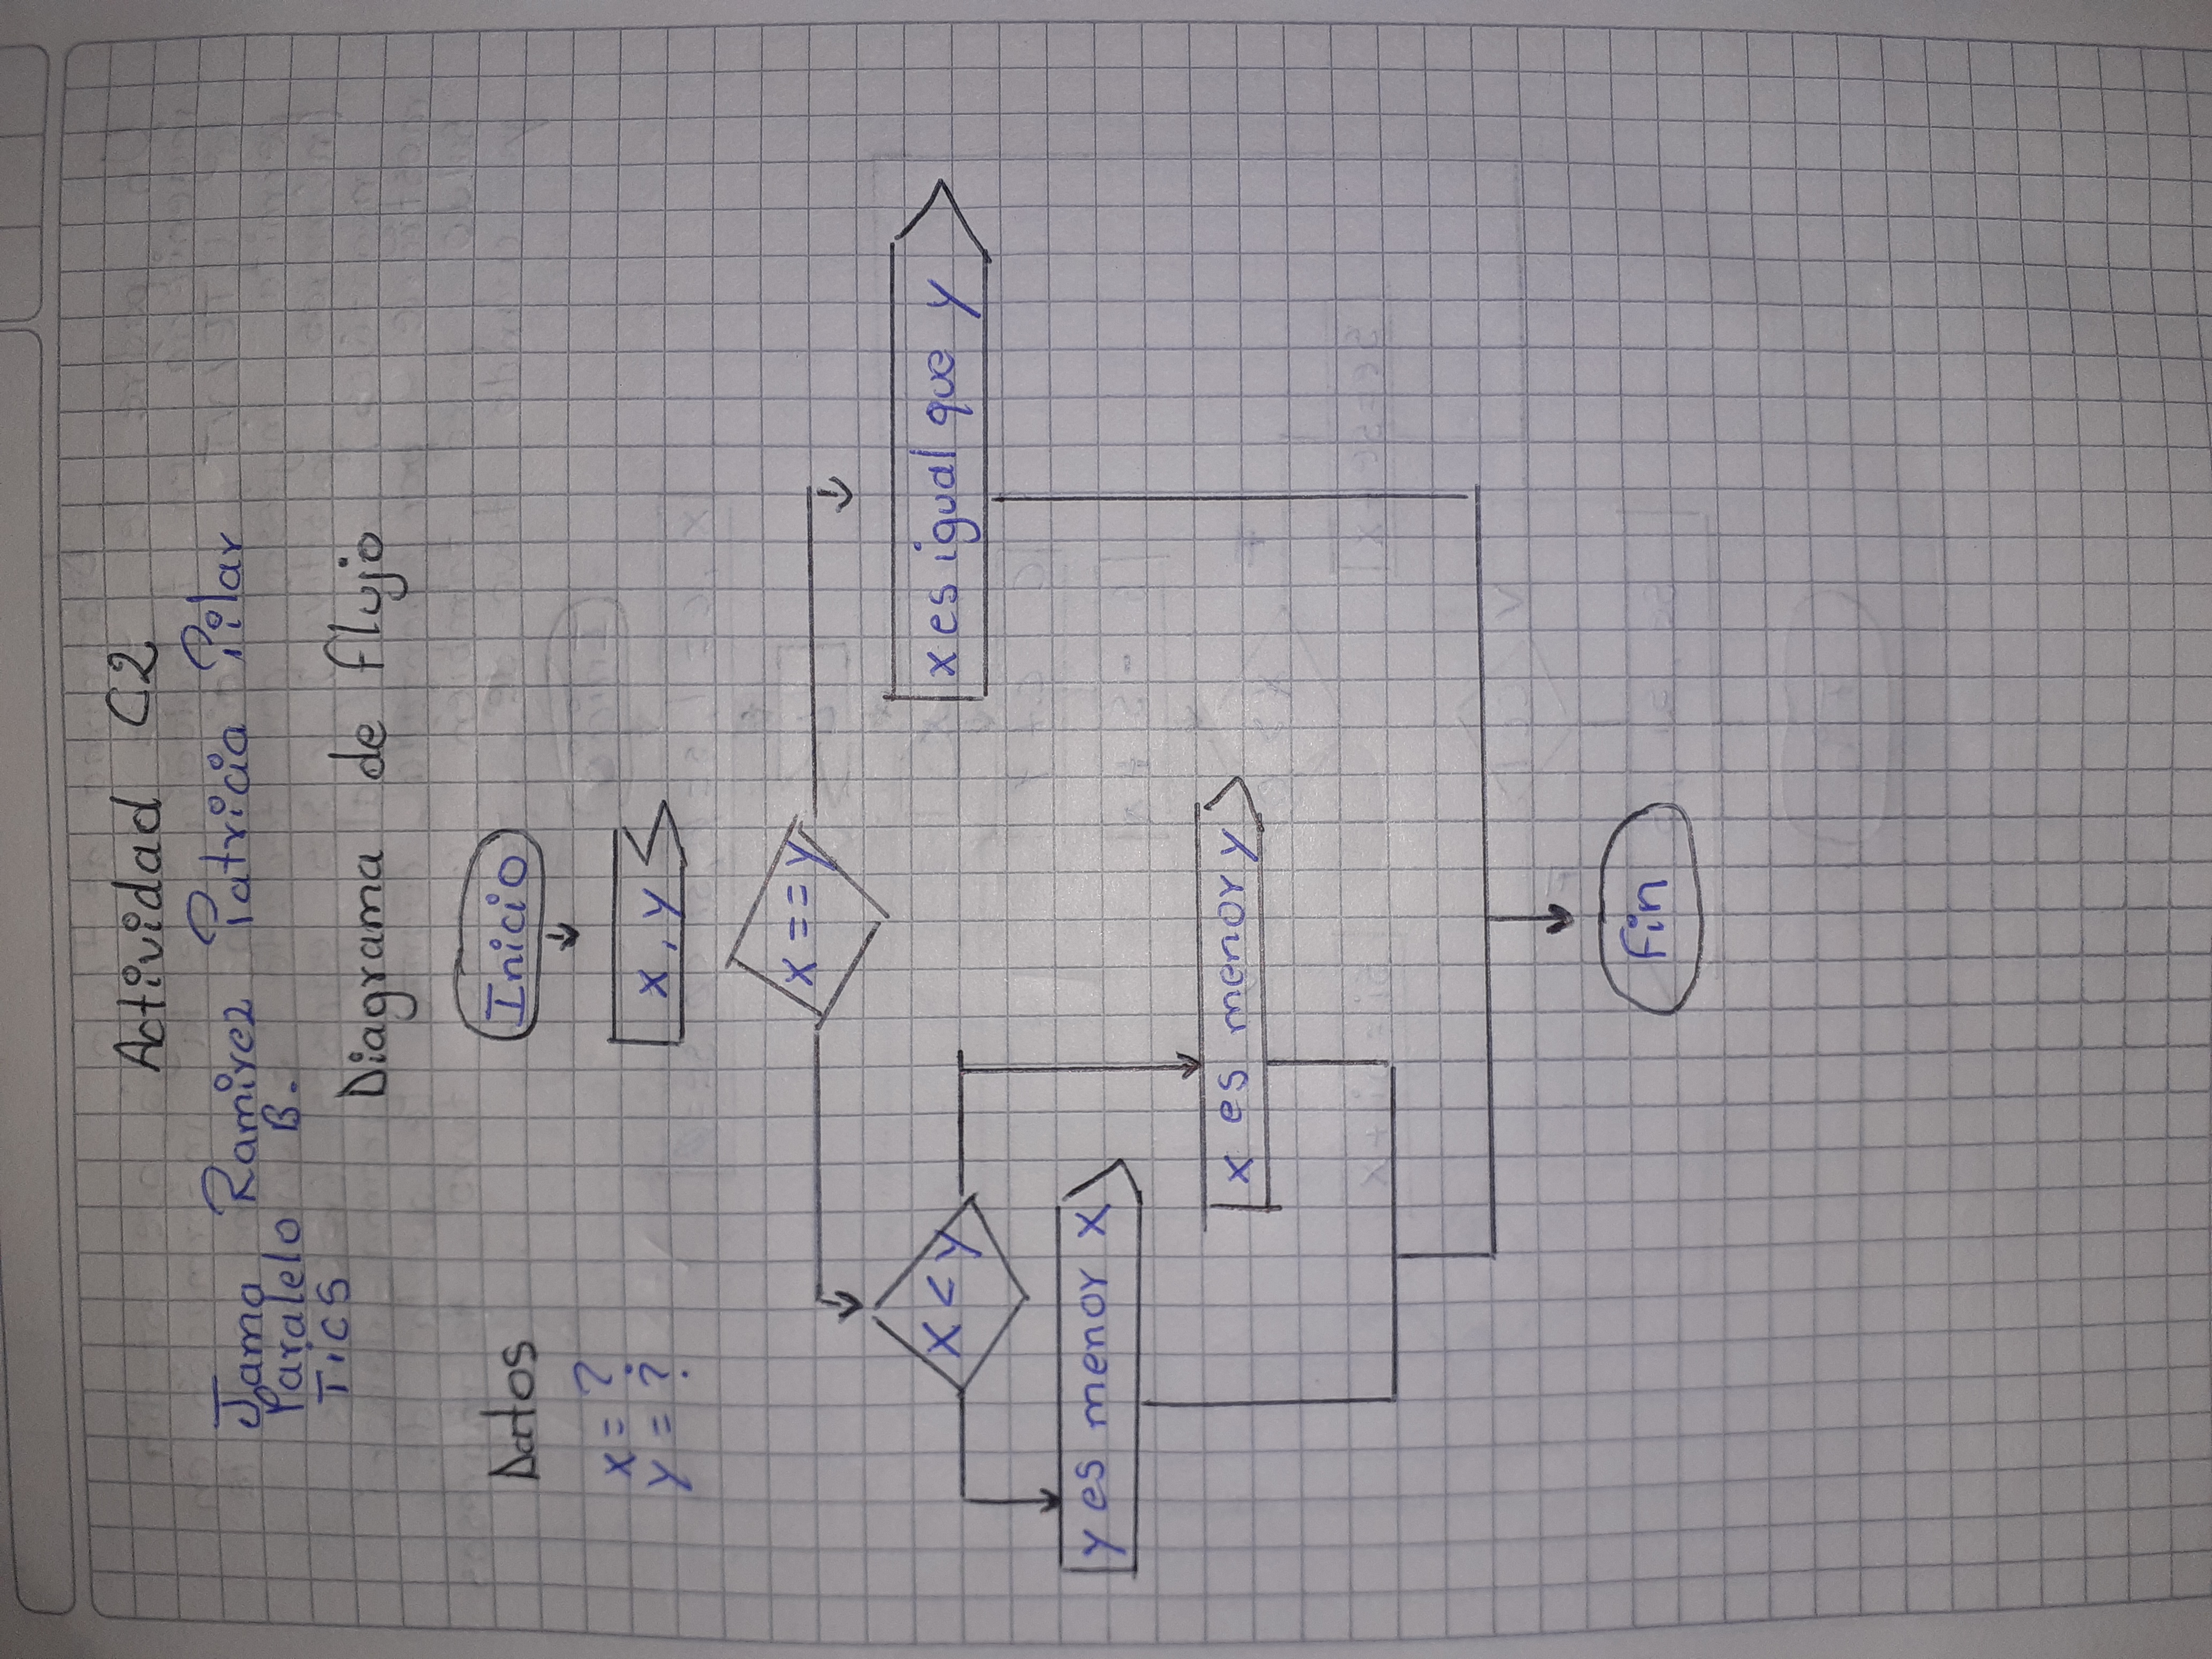 Actividad C2
Jama Ramirez Patricia Pilar
Paralelo B.
TICS
Diagrama de flujo
Datos
Inicio
x = ?
y = ?
x, y
x == y
x < y
x es igual que y
y es menor x
x es menor y
Fin